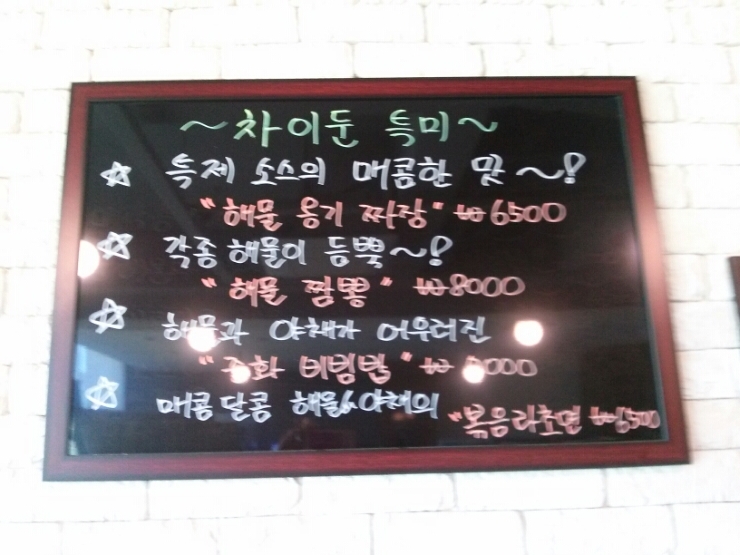 ~차이둔 특미~
☆ 특제 소스의 매콤한 맛~!
"해물 옹기 짜장" ₩6500
☆ 각종 해물이 듬뿍~!
"해물 짬뽕" ₩8000
☆ 해물과 야채가 어우러진
"중화 비빔밥" ₩
☆ 매콤달콤 해물&야채의
"볶음라초면 ₩6500